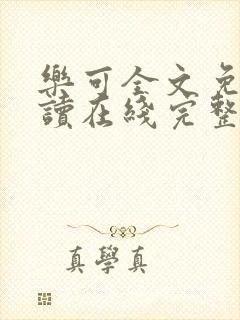 樂可全文免
讀在綫完整
真學真